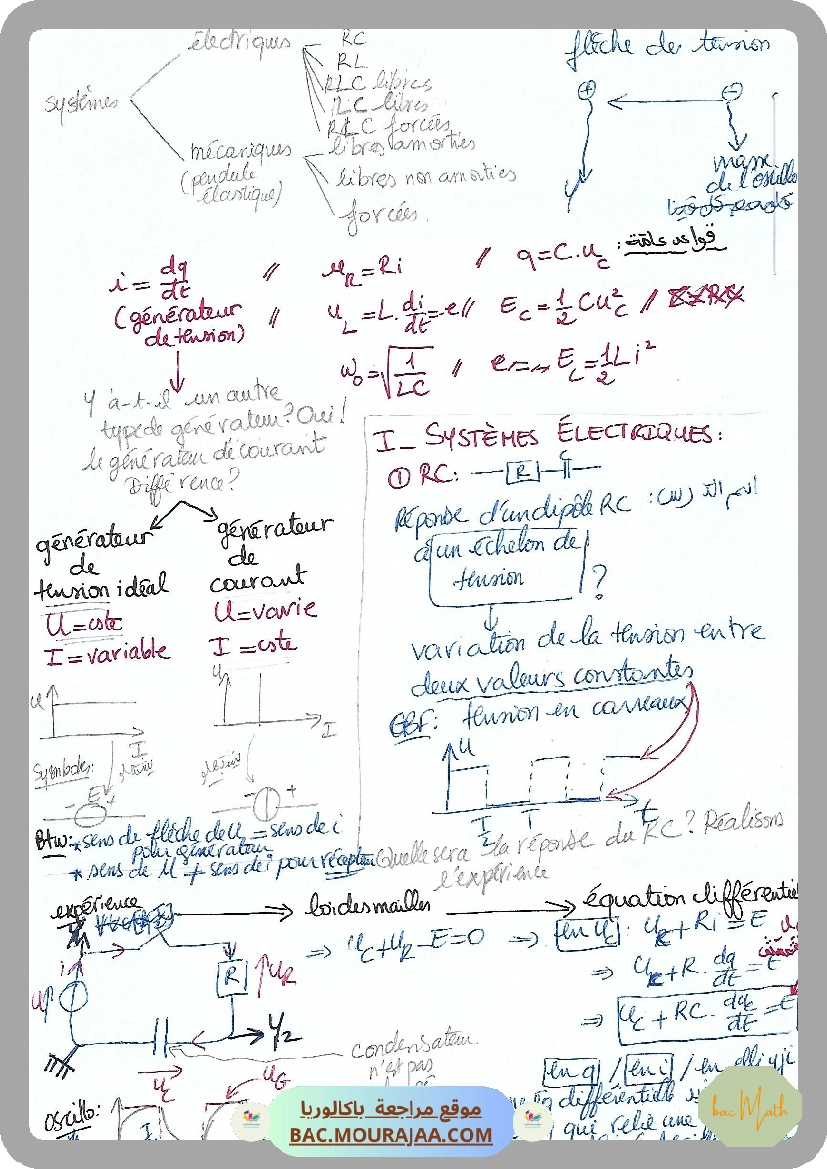 systèmes
électriques
RC
RL
RLC libres
LC libres
RLC forcées
mécaniques
(pendule
élastique)
libres amorties
libres non amorties
forcées.
flèche de tension
+ −
y
masse
de l'oscillo
قواعد عامة :
i = dq/dt // u_R = Ri // q = C.u_c
(générateur
de tension) // u_L = L.di/dt = -e // E_c = 1/2 Cu_c² //
ω₀ = √(1/LC) // E_L = 1/2 Li²
Y a-t-il un autre
type de générateur? Oui!
le générateur de courant
Différence?
générateur
de
tension idéal
U = cste
I = variable
générateur
de
courant
U = varie
I = cste
U
I
U
I
Symboles:
E +
+
Btw: * sens de flèche de U = sens de i
pour générateur
* sens de U ≠ sens de i pour récepteur
I _ SYSTÈMES ÉLECTRIQUES:
① RC: R C
اسم الدرس : Réponse d'un dipôle RC
à un échelon de
tension ?
variation de la tension entre
deux valeurs constantes
GBF: tension en carreaux
U
T/2 T t
Quelle sera la réponse du RC? Réalisons
l'expérience
expérience → loi des mailles → équation différentiel
⇒ u_C + u_R - E = 0 ⇒ en u_C : u_C + Ri = E
⇒ u_C + R.dq/dt = E
⇒ u_C + RC.du_c/dt = E
i
u
R
u_R
Y2
u_C
condensateur
n'est pas
en q / en i / en
différentielle
qui relie une
oscillo:
u_G
موقع مراجعة باكالوريا
BAC.MOURAJAA.COM
bac Math